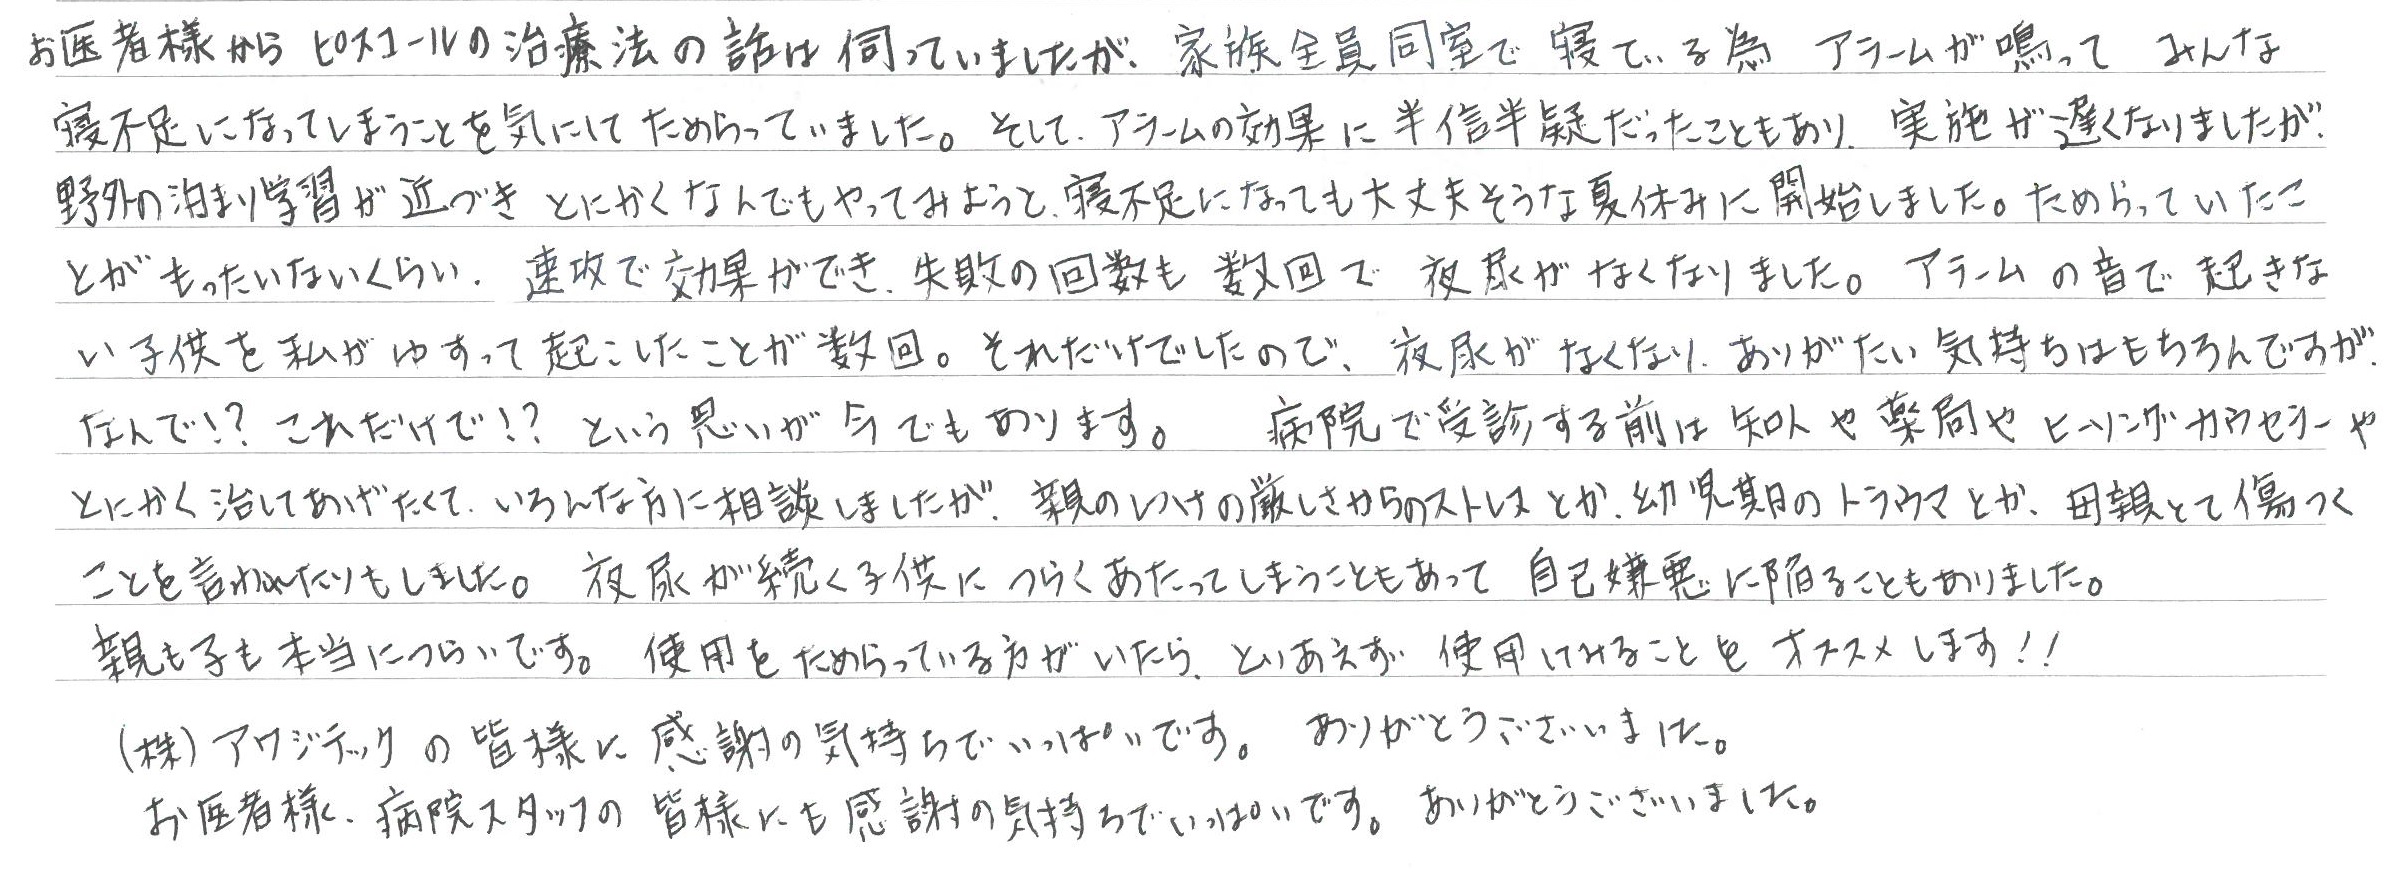 お医者様からピスコールの治療法の話は伺っていましたが、家族全員同室で寝ている為 アラームが鳴って みんな
寝不足になってしまうことを気にしてためらっていました。そして、アラームの効果に半信半疑だったこともあり、実施が遅くなりましたが、
野外の泊まり学習が近づき とにかくなんでもやってみようと、寝不足になっても大丈夫そうな夏休みに開始しました。ためらっていたこ
とがもったいないくらい、速攻で効果ができ、失敗の回数も数回で 夜尿がなくなりました。アラームの音で起きな
い子供を私がゆすって起こしたことが数回。それだけでしたので、夜尿がなくなり、ありがたい気持ちはもちろんですが、
なんで!? これだけで!? という思いが今でもあります。 病院で受診する前は知人や薬局やヒーリングカウセラーや
とにかく治してあげたくて、いろんな方に相談しましたが、親のしつけの厳しさからのストレスとか、幼児期のトラウマとか、母親として傷つく
ことを言われたりもしました。 夜尿が続く子供に つらくあたってしまうこともあって 自己嫌悪に陥ることもありました。
親も子も本当につらいです。 使用をためらっている方がいたら、とりあえず 使用してみることを オススメします!!
(株)アワジテックの皆様に感謝の気持ちでいっぱいです。 ありがとうございました。
お医者様、病院スタッフの皆様にも感謝の気持ちでいっぱいです。 ありがとうございました。